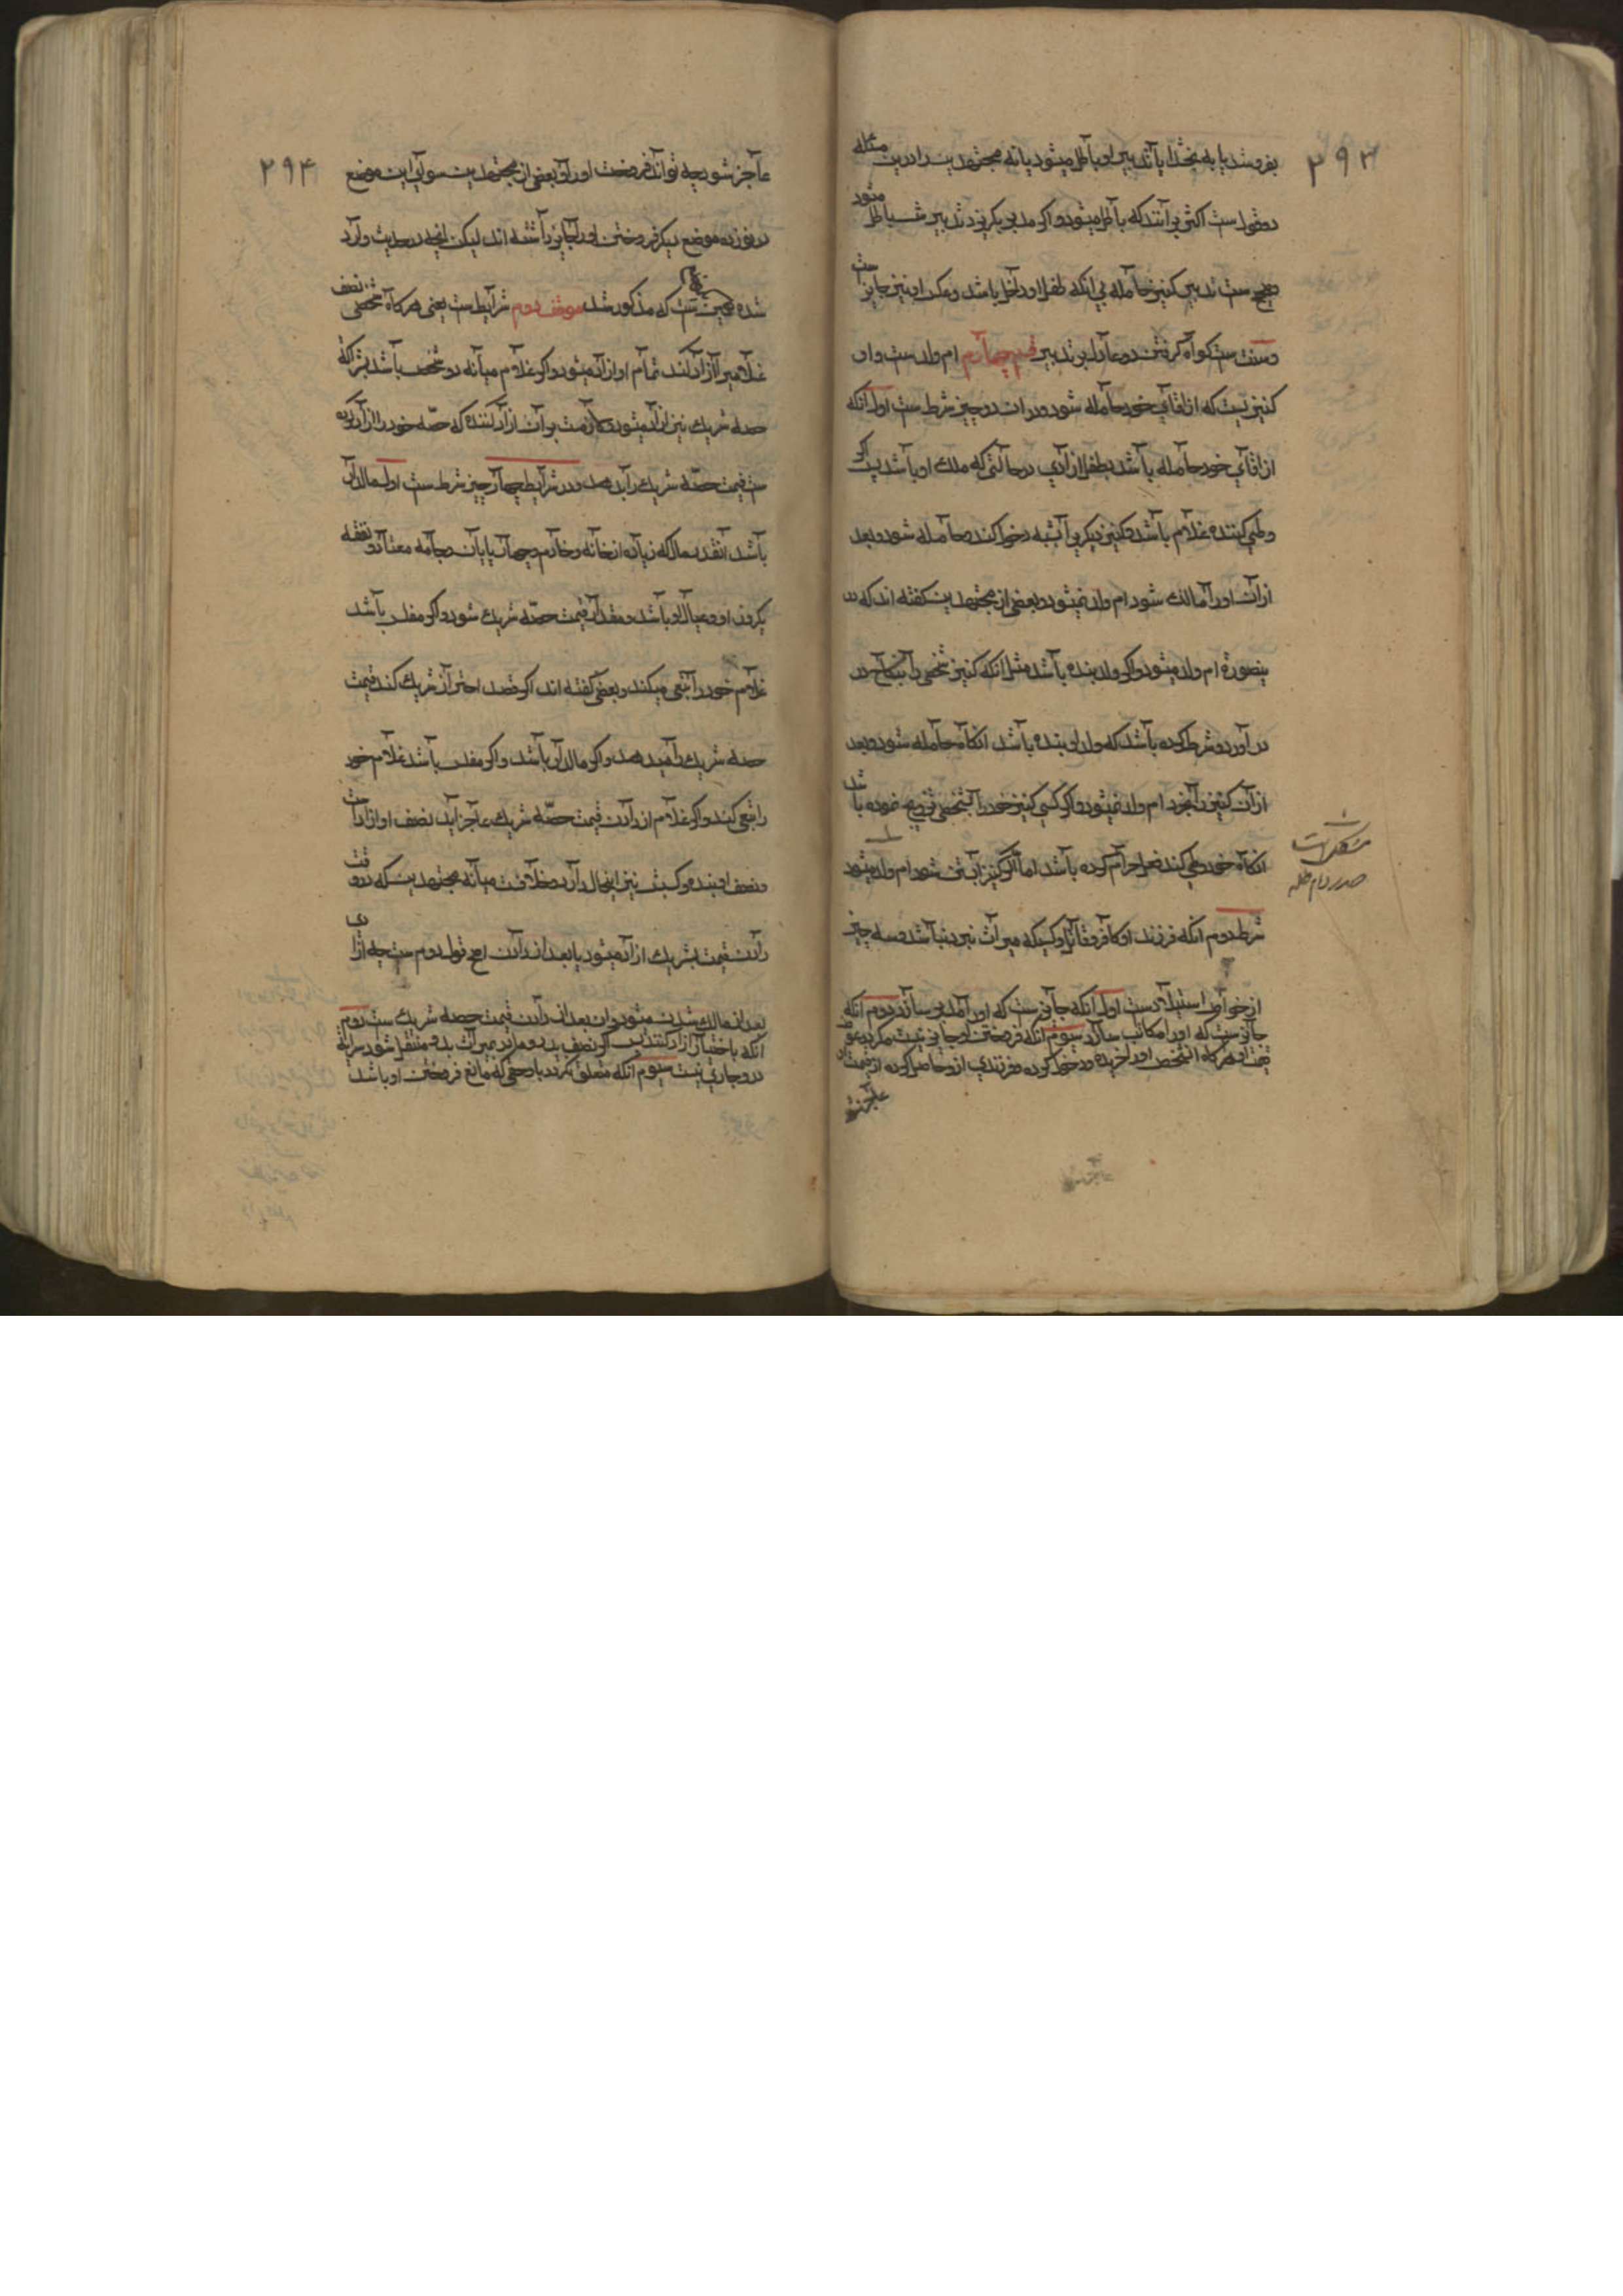 ۲۹۳
بفروشد یا به بخشد ایا تدبیر او باطل میشود یا نه مجتهدین را درین مسئله
دو قول ست اکثر بر آنند که باطل میشود و اگر مدبر بگریزد تدبیرش باطل میشود
و صحیح ست تدبیر کنیز حامله بی انکه طفل او داخل باشد و عکس او نیز جایز ست
و سنت ست گواه گرفتن دو عادل بر تدبیر قسم چهارم ام ولد ست و ان
کنیزیست که از اقای خود حامله شود و در ان دو چیز شرط ست اول انکه
از اقای خود حامله باشد بطفل ازادی در حالتی که ملک او باشد پس اگر
وطی کننده غلام باشد و کنیز دیگریرا بشبه دخول کند و حامله شود و بعد
از ان او را مالک شود ام ولد نمیشود و بعضی از مجتهدین گفته اند که در
ینصورة ام ولد میشود و اگر ولد بنده باشد مثل انکه کنیز شخصی را بنکاح در
در آورد و شرط کرده باشد که ولد او بنده باشد انکاه حامله شود و بعد
از ان کنیز را بخرد ام ولد نمیشود و اگر کسی کنیز خود را بشخصی تزویج نموده باشد
انکاه خود وطی کند فعل حرام کرده باشد اما اگر کنیز ابستن شود ام ولد میشود
شرط دوم انکه فرزند او کافر و قاتل و کسیکه میراث نبرد نباشد و سه چیز
از خواص استیلاد ست اول انکه جایز ست که او را مدبر سازد دوم انکه
جایز ست که او را مکاتب سازد سیوم انکه فروختن او جایز نیست مگر در عوض
قیمت او هر گاه انشخص او را خریده و دخول کرده و فرزندی از و حاصل کرده از قیمت او
عاجز شود
۲۹۴
عاجز شود چه تواند فروخت او را و بعضی از مجتهدین سوای این موضع
در نوزده موضع دیگر فروختن او را جایز داشته اند لیکن انچه در حدیث وارد
شده همین ست که مذکور شد موقف دوم شرایط ست یعنی هر گاه شخصی نصف
غلامیرا ازاد کند تمام او ازاد میشود و اگر غلام میانه دو شخص باشد بشراکة
حصه شریک نیز ازاد میشود و لازمست بر آن ازاد کننده که حصّه خود را ازاد کرده
ست قیمت حصّه شریک را بدهد و در شرایط چهار چیز شرط ست اول مالدار
باشد انقدر مال که زیاده از خانه و خادم و چهار پایان و جامه معتاد و نفقه
یکروز او و عیال او باشد و مقدار قیمت حصّه شریک شود و اگر مفلس باشد
غلام خود را سعی میکند و بعضی گفته اند اگر قصد اضرار شریک کند قیمت
حصه شریک را میدهد و اگر مالدار باشد و اگر مفلس باشد غلام خود
را سعی کند و اگر غلام از دادن قیمت حصّه شریک عاجز اید نصف او ازاد ست
و نصف او بنده و کسبش نیز اینحال دارد و خلافست میانه مجتهدین که در وقت
دادن قیمت بشریک ازاد میشود یا بعد از دادن اصح قول دوم ست چه ازادی
بعد از مالک شدن میشود و ان بعد از دادن قیمت حصه شریک ست دوم
انکه باختیار ازاد کند پس اگر نصف پدر و مادر بمیراث بدو منتقل شود سرایة
در و جاری نیست سیوم انکه متعلق نگردد باو حقی که مانع فروختن او باشد